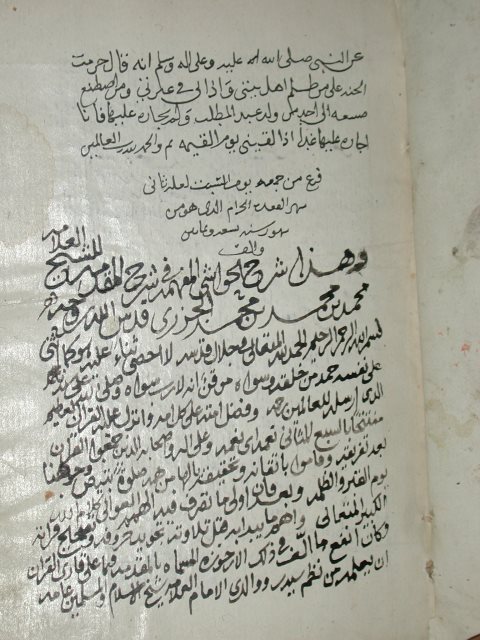 عن النبي صلى الله عليه وعلى اله وسلم انه قال حرمت
الجنة على من ظلم اهل بيتي واذاني في عترتي ومن اصطنع
صنيعة الى احد من ولد عبد المطلب ولم يجازه عليها فانا
اجازه عليها غدا اذا لقيني يوم القيمة تم والحمد لله رب العالمين
فرغ من جمعه يوم السبت لعله ثاني
شهر القعدة الحرام الذي هو من
شهور سنة تسعة وثمانين
والف
وهذا شرح الحواشي المفهمة في شرح المقدمة للشيخ العلامة
محمد بن محمد بن محمد الجزري قدس الله روحه
بسم الله الرحمن الرحيم الحمد لله المتعالي في جلال قدسه لا احصي ثناء عليه هو كما اثنى
على نفسه حمد من خلقه وسواه من قن انه لا رب سواه وصلى الله على
الذي ارسله للعالمين رحمة وفضل امته على كل امة وانزل عليه القرآن العظيم
مفتتحا بالسبع المثاني وعلى اله وصحابه الذين حفظوا القران
يوم الفقر والظلمة وبعد فان اولى ما تصرف فيه الهمم
الكبير المتعالي واهم ما يبدا به قبل تلاوته تجويد حروفه وتصحيح قراته
وكان انفع ما الف في ذلك الارجوزة المسماة بالمقدمة فيما على قاري القران
ان يعلمه من نظم سيدي ووالدي الامام العلامة شيخ الاسلام والمسلمين